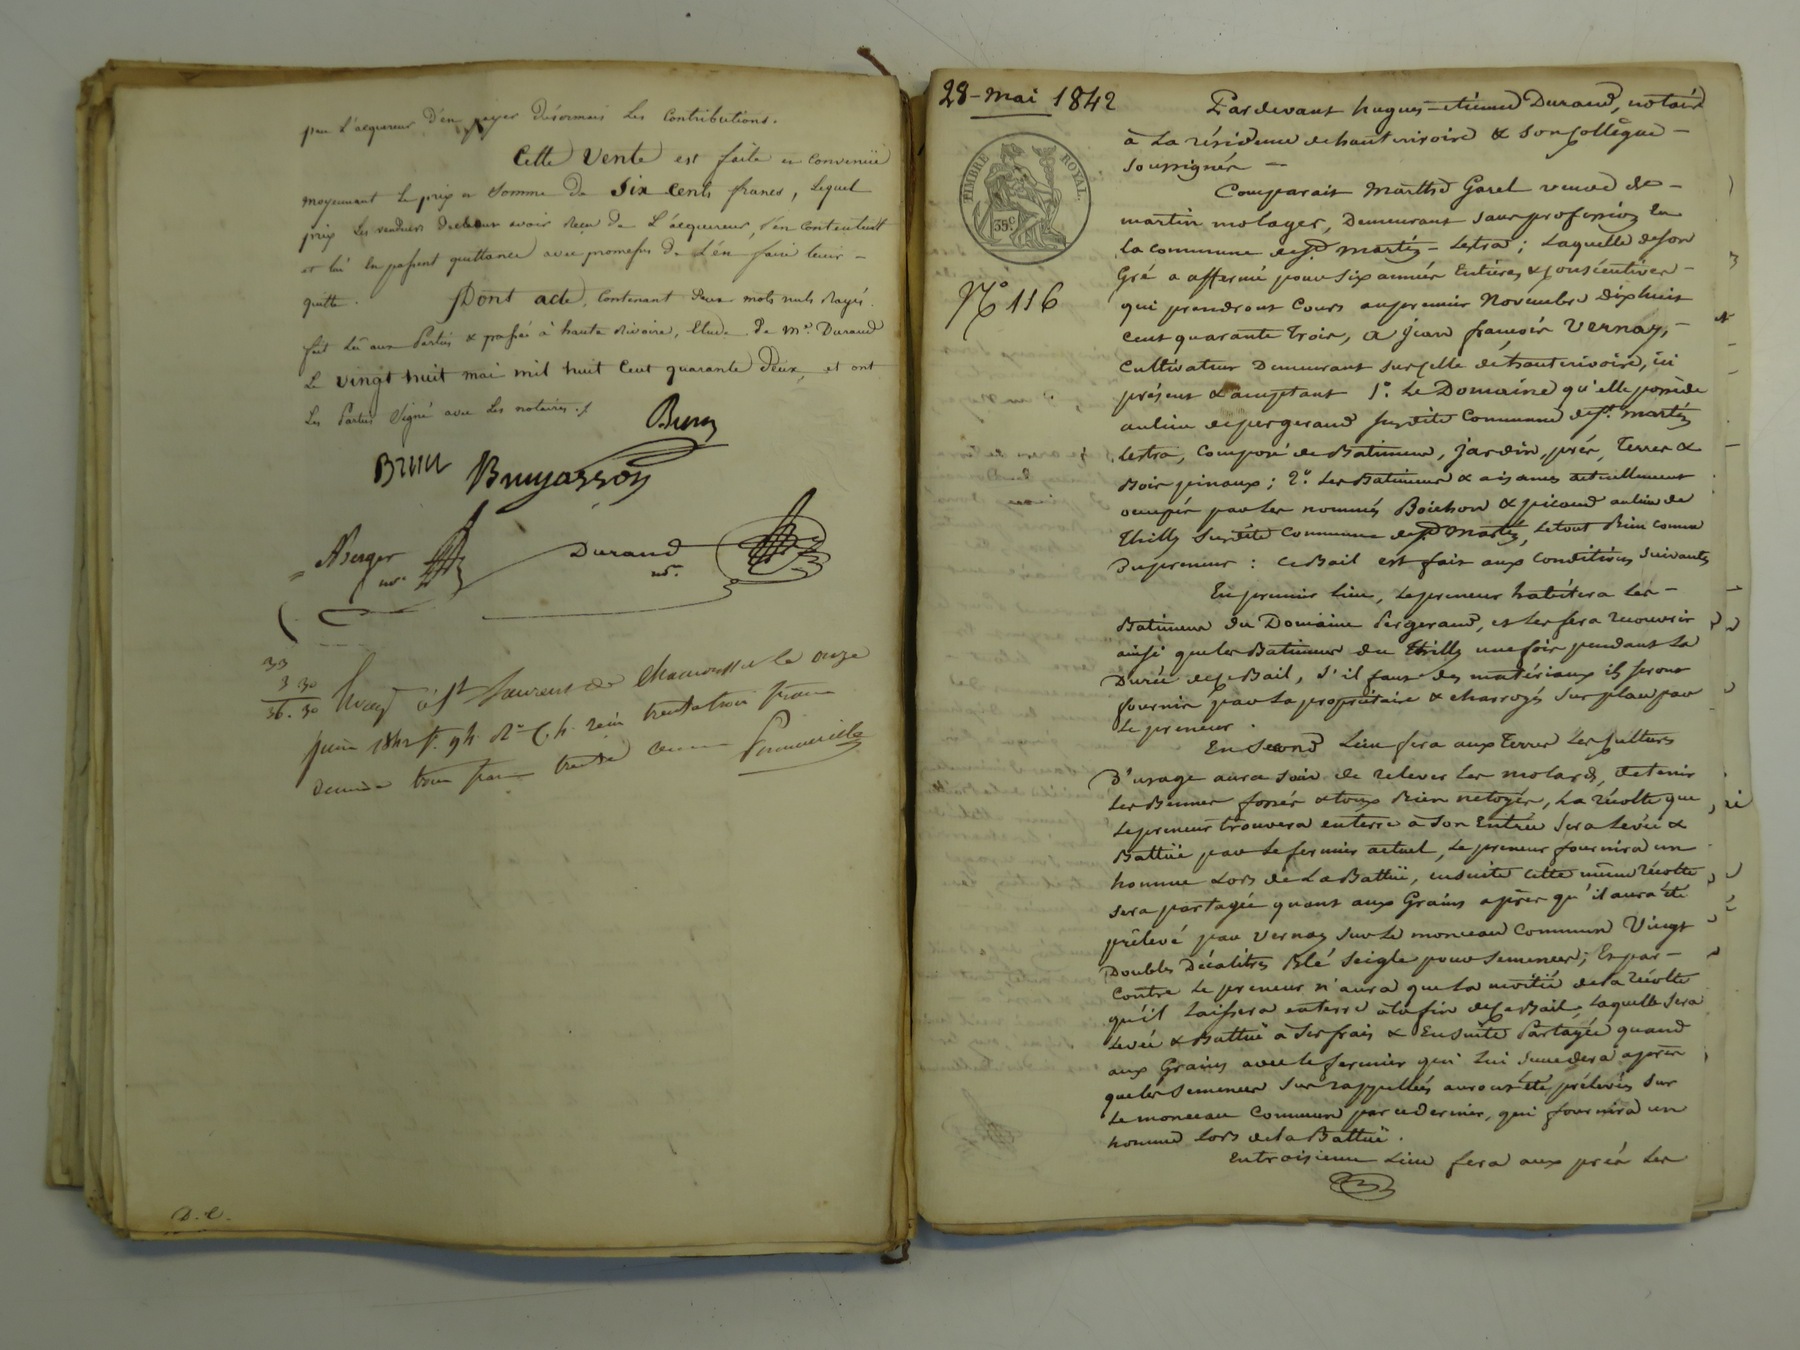 par L'acquereur d'en payer désormais Les Contributions.
Cette Vente est faite et convenüe
moyennant Le prix et Somme de Six Cents francs, Lequel
prix Les vendeurs déclarent avoir Reçu de L'acquereur, s'en contentent
et lui En passent quittance avec promesses de L'en faire tenir -
quitte. Dont acte, Contenant Deux mots nuls Rayés.
fait Lû aux Parties & passé à haute Rivoire, Etude de Me. Durand
Le Vingt huit mai mil huit Cent quarante Deux, et ont
Les Parties Signé avec Les notaires./.
Brun
Brun Bruyasson
Berger
nre.
Durand
nre.
33
3 30
36.30
à St Laurent de Chamousset le onze
juin 1842 f. 94 Ro C. h. reçu trente trois francs
décime trois francs trente centimes
D. C.
28 - Mai 1842
TIMBRE ROYAL
35 C.
No 116
Pardevant hugues-étienne Durand, notaire
à La résidence de hauterivoire & Son Collègue -
Soussignés -
Comparait Marthe Garel veuve de -
martin molager, Demeurant Sans profession En
La commune de St. Martin - Lestra; Laquelle de Son
Gré a affermé pour Six années Entières & Consécutives -
qui prendront Cours au premier Novembre Dixhuit
Cent quarante Trois, à jean françois Vernay, -
Cultivateur Demeurant Sur Celle de hauterivoire, ici
présent & acceptant 1o. Le Domaine qu'elle possède
au lieu de pergerand Susdite Commune de St. Martin
Lestra, Composé de Batiments, jardin, prés, Terres &
Bois pinaux; 2o. Les Batiments & aisances actuellement
occupés par les nommés Boichon & picaud au lieu de
Thilly Susdite Commune de St Martin, Le tout Bien connu
Du preneur: Ce Bail est fait aux Conditions Suivantes
En premier Lieu, Le preneur habitera Les -
Batiments du Domaine Pergerand, et Les fera recouvrir
ainsi que les Batiments du Thilly une fois pendant La
Durée de Ce Bail, S'il faut des matériaux ils seront
fournis par La propriétaire & charroyés Sur place par
Le preneur.
En Second Lieu fera aux Terres Les Cultures
D'usage aura Soin de relever Les molards, de tenir
Les Bennes fossés & tous Bien netoyés, La récolte que
Le preneur trouvera en terre à Son Entrée Sera Levée &
Battue par Le fermier actuel, Le preneur fournira un
homme Lors de La Battue, ensuite cette même récolte
Sera partagée quant aux Grains après qu'il aura été
prélevé par Vernay Sur Le monceau Commun Vingt
Doubles Décalitres Blé Seigle pour Semences; En par -
Contre Le preneur n'aura que La moitié de La récolte
qu'il Laissera en terre à La fin de Ce Bail, Laquelle Sera
Levée & Battue à Ses frais & Ensuite Partagée quand
aux Grains avec Le fermier qui Lui Succedera après
que les Semences Sus rappellées auront été prélevées Sur
Le monceau Commun par ce dernier, qui fournira un
homme Lors de La Battue.
En troisième Lieu fera aux prés Les